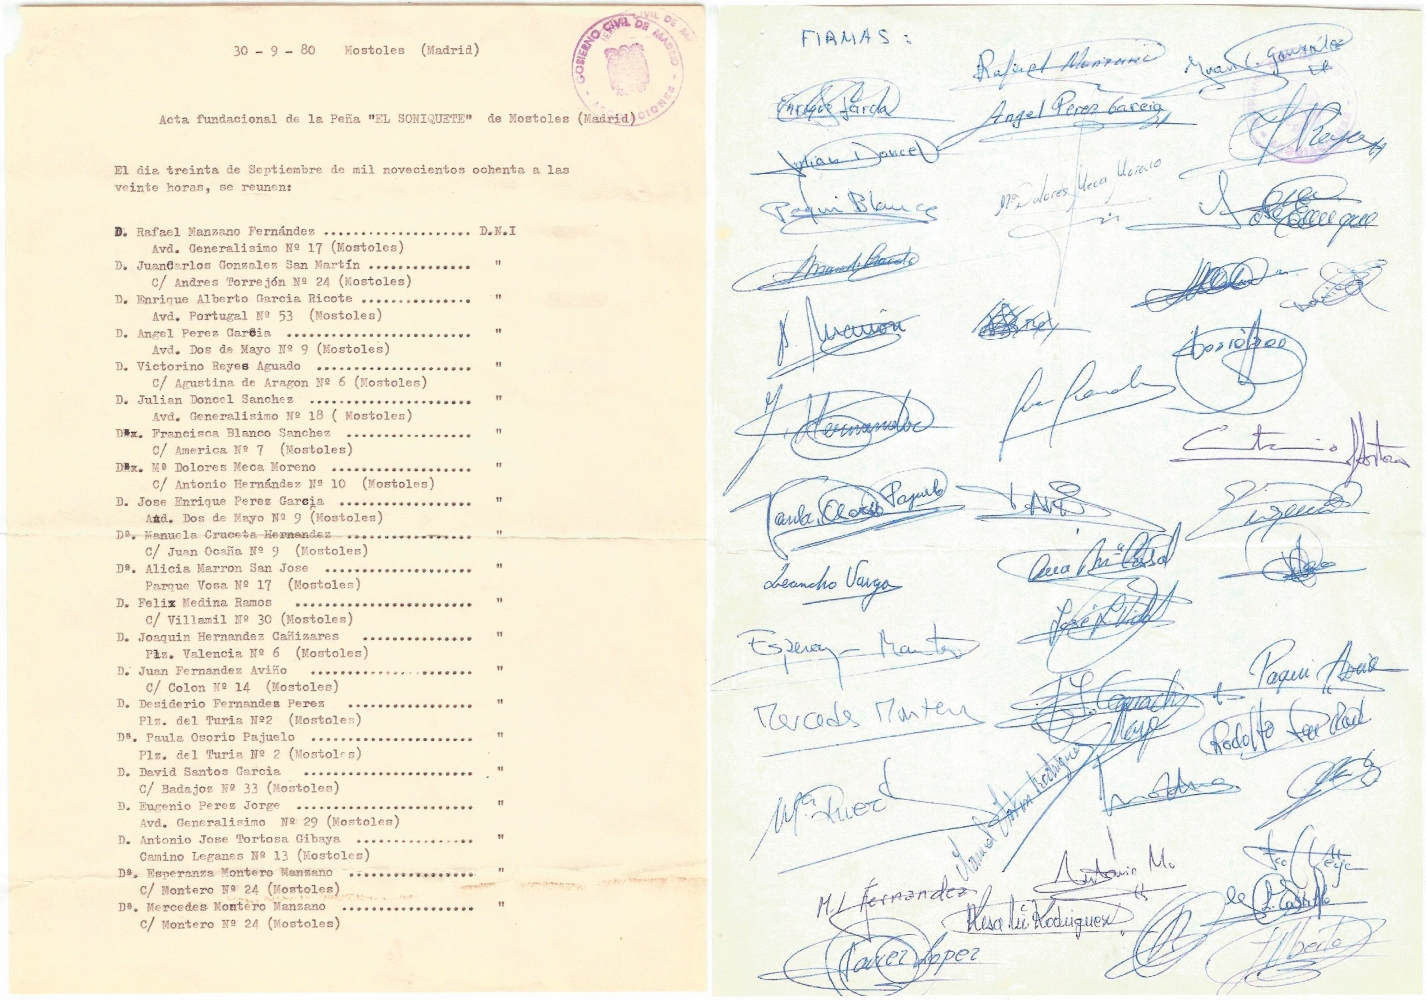 30 - 9 - 80 Mostoles (Madrid)
GOBIERNO CIVIL DE MADRID - ASOCIACIONES -
Acta fundacional de la Peña "EL SONIQUETE" de Mostoles (Madrid)
El dia treinta de Septiembre de mil novecientos ochenta a las
veinte horas, se reunen:
D. Rafael Manzano Fernández .................... D.N.I
Avd. Generalisimo Nº 17 (Mostoles)
D. JuanCarlos Gonzalez San Martín .............. "
C/ Andres Torrejón Nº 24 (Mostoles)
D. Enrique Alberto Garcia Ricote ............... "
Avd. Portugal Nº 53 (Mostoles)
D. Angel Perez Garcia ......................... "
Avd. Dos de Mayo Nº 9 (Mostoles)
D. Victorino Reyes Aguado ..................... "
C/ Agustina de Aragon Nº 6 (Mostoles)
D. Julian Doncel Sanchez ...................... "
Avd. Generalisimo Nº 18 ( Mostoles)
Dªx. Francisca Blanco Sanchez ................. "
C/ America Nº 7 (Mostoles)
Dªx. Mª Dolores Meca Moreno ................... "
C/ Antonio Hernández Nº 10 (Mostoles)
D. Jose Enrique Perez Garcia .................... "
Avd. Dos de Mayo Nº 9 (Mostoles)
Dª. Manuela Cruceta Hernandez ................... "
C/ Juan Ocaña Nº 9 (Mostoles)
Dª. Alicia Marron San Jose ...................... "
Parque Vosa Nº 17 (Mostoles)
D. Felix Medina Ramos ........................ "
C/ Villamil Nº 30 (Mostoles)
D. Joaquin Hernandez Cañizares ............... "
Plz. Valencia Nº 6 (Mostoles)
D. Juan Fernandez Aviño ...................... "
C/ Colon Nº 14 (Mostoles)
D. Desiderio Fernandes Perez ................. "
Plz. del Turia Nº2 (Mostoles)
Dª. Paula Osorio Pajuelo ..................... "
Plz. del Turia Nº 2 (Mostoles)
D. David Santos Garcia ....................... "
C/ Badajoz Nº 33 (Mostoles)
D. Eugenio Perez Jorge ....................... "
Avd. Generalisimo Nº 29 (Mostoles)
D. Antonio Jose Tortosa Gibaya ............... "
Camino Leganes Nº 13 (Mostoles)
Dª. Esperanza Montero Manzano ................ "
C/ Montero Nº 24 (Mostoles)
Dª. Mercedes Montero Manzano ................. "
C/ Montero Nº 24 (Mostoles)
FIRMAS:
Rafael Manzano
Juan C. González
Enrique García
Angel Perez Garcia
Julian Doncel
V Reyes
Paqui Blanco
Mª Dolores Meca Moreno
Jose Enrique
A. Marrón
J. Hernandez
Antonio Tortosa
Paula Osorio Pajuelo
Eugenio
Leandro Vargas
Ana Mª
José L. Vidal
Mercedes Montero
Paqui
Rodolfo
Mª
M.L Fernandez
Antonio M.
Rosa Mª Rodriguez
Javier Lopez
Alberto